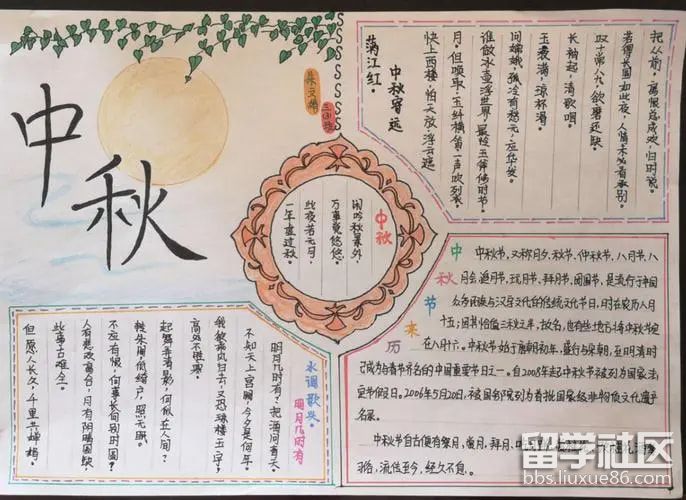 中秋
满江红。
中秋寄远
快上西楼,怕天放浮云遮
月。但唤取、玉纤横管一声吹裂。
谁做冰壶浮世界,最怜玉斧修时节。
问嫦娥,孤冷有愁无,应华发。
玉液满,琼杯滑。
长袖起,清歌咽。
叹十常八九,欲磨还缺。
若得长圆如此夜,人情未必看承别。
把从前,离恨总成欢,归时说。
中秋
闲吟秋景外,
万事觉悠悠。
此夜若无月,
一年虚过秋。
水调歌头。
明月几时有
明月几时有?把酒问青天。
不知天上宫阙,今夕是何年。
我欲乘风归去,又恐琼楼玉宇,
高处不胜寒。
起舞弄清影,何似在人间?
转朱阁,低绮户,照无眠。
不应有恨,何事长向别时圆?
人有悲欢离合,月有阴晴圆缺,
此事古难全。
但愿人长久,千里共婵娟。
中秋节来历
中秋节,又称月夕、秋节、仲秋节、八月节、八
月会、追月节、玩月节、拜月节、团圆节,是流行于中国
众多民族与汉字文化的传统文化节日,时在农历八月
十五;因其恰值三秋之半,故名,也有些地方将中秋节定
在八月十六。中秋节始于唐朝初年,盛行与宋朝,至明清时
已成为与春节齐名的中国重要节日之一。自2008年起中秋节被列为国家法
定节假日。2006年5月20日,被国务院列为首批国家级非物质文化遗产
名录。
中秋节自古便有祭月、赏月、拜月、
流传至今,经久不息。
留学社区
bbs.liuxue86.com